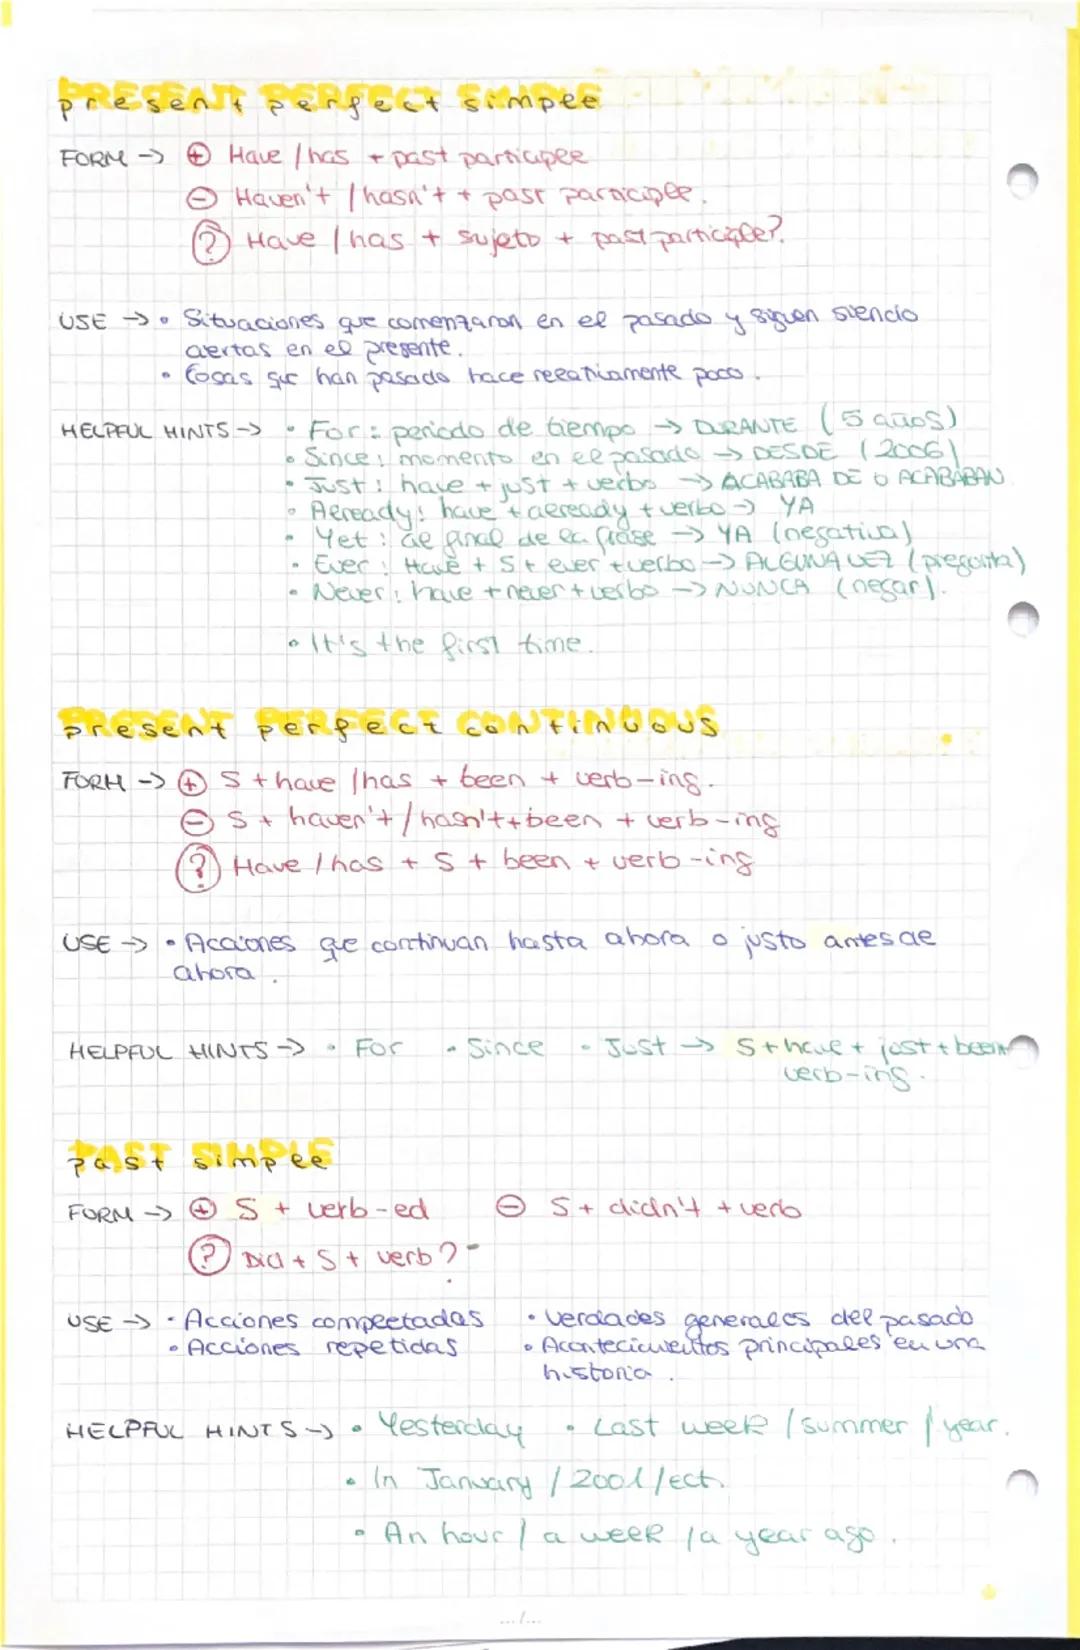 present perfect simple
FORM -> + Have / has + past participle
- Haven't / hasn't + past participle.
? Have / has + sujeto + past participle?.
USE -> • Situaciones que comenzaron en el pasado y siguen siendo
ciertas en el presente.
• Cosas que han pasado hace relativamente poco.
HELPFUL HINTS -> • For: periodo de tiempo -> DURANTE (5 años)
• Since: momento en el pasado -> DESDE (2006)
• Just: have + just + verbo -> ACABABA DE O ACABABAN
• Already: have + already + verbo -> YA
• Yet: al final de la frase -> YA (negativa)
• Ever: Have + S + ever + verbo -> ALGUNA VEZ (pregunta)
• Never: have + never + verbo -> NUNCA (negar).
• It's the first time.
present perfect continuous
FORM -> + S + have / has + been + verb-ing.
- S + haven't / hasn't + been + verb-ing
? Have / has + S + been + verb-ing
USE -> • Acciones que continuan hasta ahora o justo antes de
ahora.
HELPFUL HINTS -> • For • Since • Just -> S + have + just + been +
verb-ing.
past simple
FORM -> + S + verb-ed - S + didn't + verb
? Did + S + verb?
USE -> • Acciones completadas • Verdades generales del pasado
• Acciones repetidas • Acontecimientos principales en una
historia.
HELPFUL HINTS -> • Yesterday • Last week / summer / year.
• In January / 2001 / ect.
• An hour / a week / a year ago.
.../...